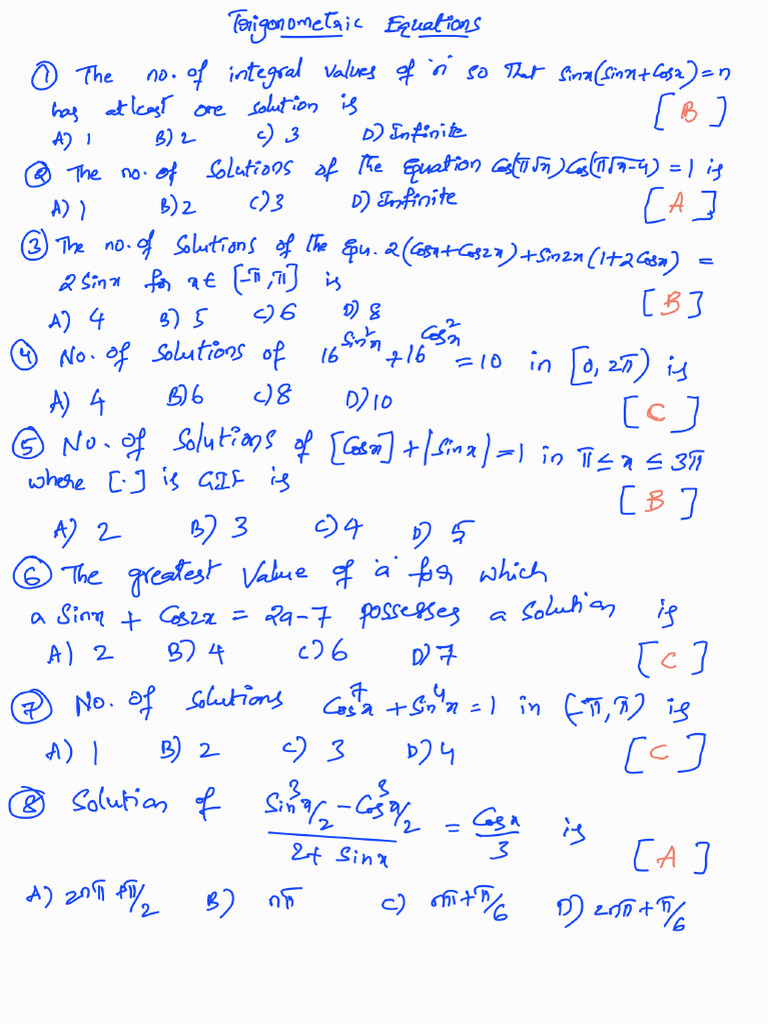 Trigonometric Equations
① The no. of integral values of 'n' so that sinx(sinx+cosx)=n
has atleast one solution is [ B ]
A) 1 B) 2 C) 3 D) Infinite
② The no. of solutions of the equation cos(π√x)cos(π√x-4) = 1 is
A) 1 B) 2 C) 3 D) Infinite [ A ]
③ The no. of solutions of the Equ. 2(cosx+cos2x)+sin2x(1+2cosx) =
2 sinx for x∈ [-π,π] is
A) 4 B) 5 C) 6 D) 8 [ B ]
④ No. of solutions of 16^sin²x + 16^cos²x = 10 in [0, 2π) is
A) 4 B) 6 C) 8 D) 10 [ C ]
⑤ No. of solutions of [cosx] + |sinx| = 1 in π ≤ x ≤ 3π
where [·] is GIF is [ B ]
A) 2 B) 3 C) 4 D) 5
⑥ The greatest value of 'a' for which
a sinx + cos2x = 2a-7 possesses a solution is
A) 2 B) 4 C) 6 D) 7 [ C ]
⑦ No. of solutions cos⁷x + sin⁴x = 1 in (-π, π) is
A) 1 B) 2 C) 3 D) 4 [ C ]
⑧ Solution of (sin³x/2 - cos³x/2)/(2+sinx) = cosx/3 is [ A ]
A) 2nπ+π/2 B) nπ C) nπ+π/6 D) 2nπ+π/6